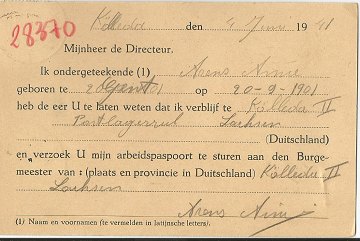 28370
Kölleda den 4 Juni 1941
Mijnheer de Directeur.
Ik ondergeteekende (1) Arens Aimé
geboren te Gent op 20-9-1901
heb de eer U te laten weten dat ik verblijf te Kölleda II
Sachsen
(Duitschland)
en verzoek U mijn arbeidspaspoort te sturen aan den Burge-
meester van : (plaats en provincie in Duitschland) Kölleda II
Sachsen
Arens Aimé
(1) Naam en voornamen (te vermelden in latijnsche letters).